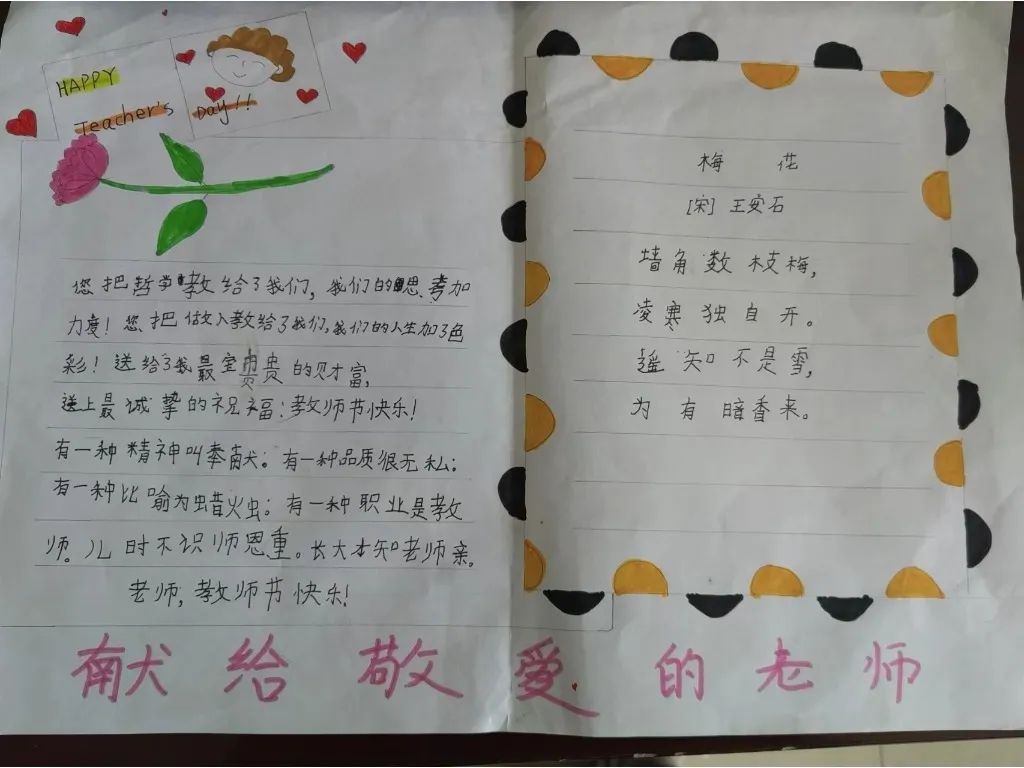 HAPPY
Teacher's Day!!
您把哲学教给了我们,我们的思考加
力度!您把做人教给了我们,我们的人生加了色
彩!送给了我最宝贵贵的财富,
送上最诚挚的祝福:教师节快乐!
有一种精神叫奉献:有一种品质很无私:
有一种比喻为蜡火虫:有一种职业是教
师。儿时不识师恩重。长大本知老师亲。
老师,教师节快乐!
梅 花
[宋] 王安石
墙角数枝梅,
凌寒独自开。
遥知不是雪,
为有暗香来。
献给敬爱的老师